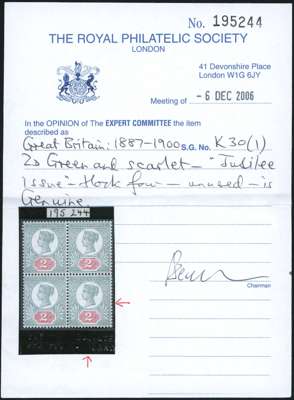 No. 195244
THE ROYAL PHILATELIC SOCIETY
LONDON
41 Devonshire Place
London W1G 6JY
Meeting of - 6 DEC 2006
In the OPINION of The EXPERT COMMITTEE the item
described as
Great Britain: 1887-1900 S.G. No. K30(1)
2d Green and scarlet - "Jubilee
issue" - block four - unused - is
Genuine.
195 244
2 2
2 2
Chairman